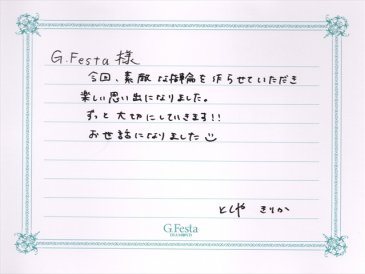 G.Festa 様
今回、素敵な指輪を作らせていただき
楽しい思い出になりました。
ずっと大切にしていきます!!
お世話になりました
としや きりか
G.Festa